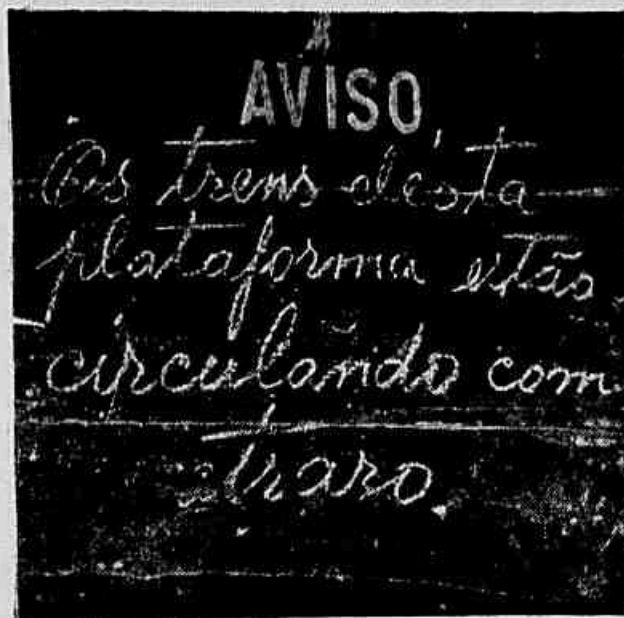 AVISO
Os trens desta
plataforma estão
circulando com
atrazo.